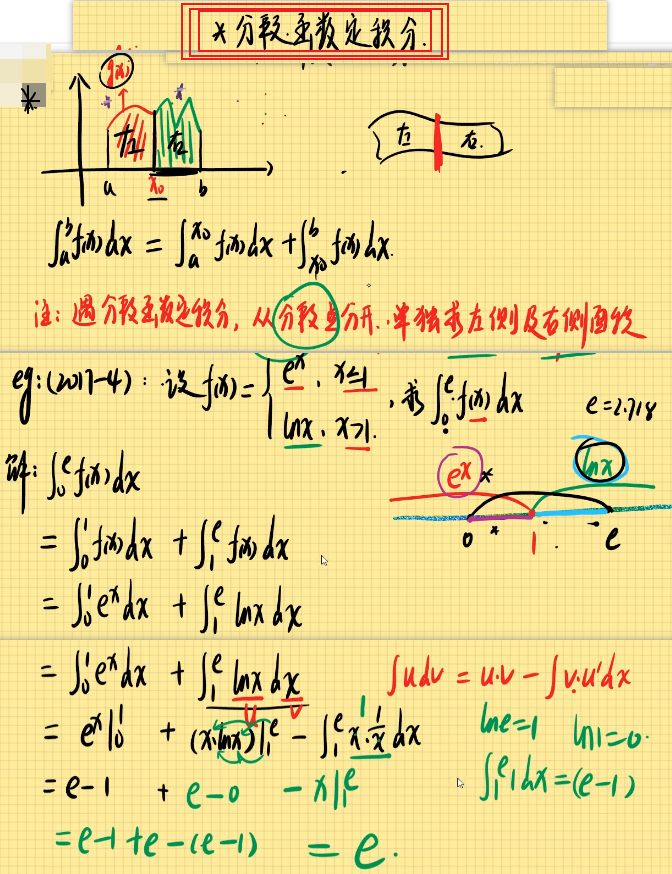 *分段函数定积分.
g(x)
左 右
a x₀ b
左 右.
∫ₐᵇf(x)dx = ∫ₐˣ⁰ f(x)dx + ∫ₓ₀ᵇ f(x)dx.
注：遇分段函数定积分，从分段点分开，单独求左侧及右侧面积
eg:(2017-4)：设f(x)={eˣ, x≤1
lnx, x>1. ，求∫₀ᵉ f(x)dx e=2.718
解：∫₀ᵉ f(x)dx
eˣ lnx
0 1 e
= ∫₀¹ f(x)dx + ∫₁ᵉ f(x)dx
= ∫₀¹ eˣdx + ∫₁ᵉ lnx dx
= ∫₀¹ eˣdx + ∫₁ᵉ lnx dx ∫udv = u·v - ∫v·u'dx
u v
= eˣ|₀¹ + (x·lnx)|₁ᵉ - ∫₁ᵉ x·1/x dx lne=1 ln1=0
1
= e-1 + e-0 - x|₁ᵉ ∫₁ᵉ1dx=(e-1)
= e-1+e-(e-1) = e.